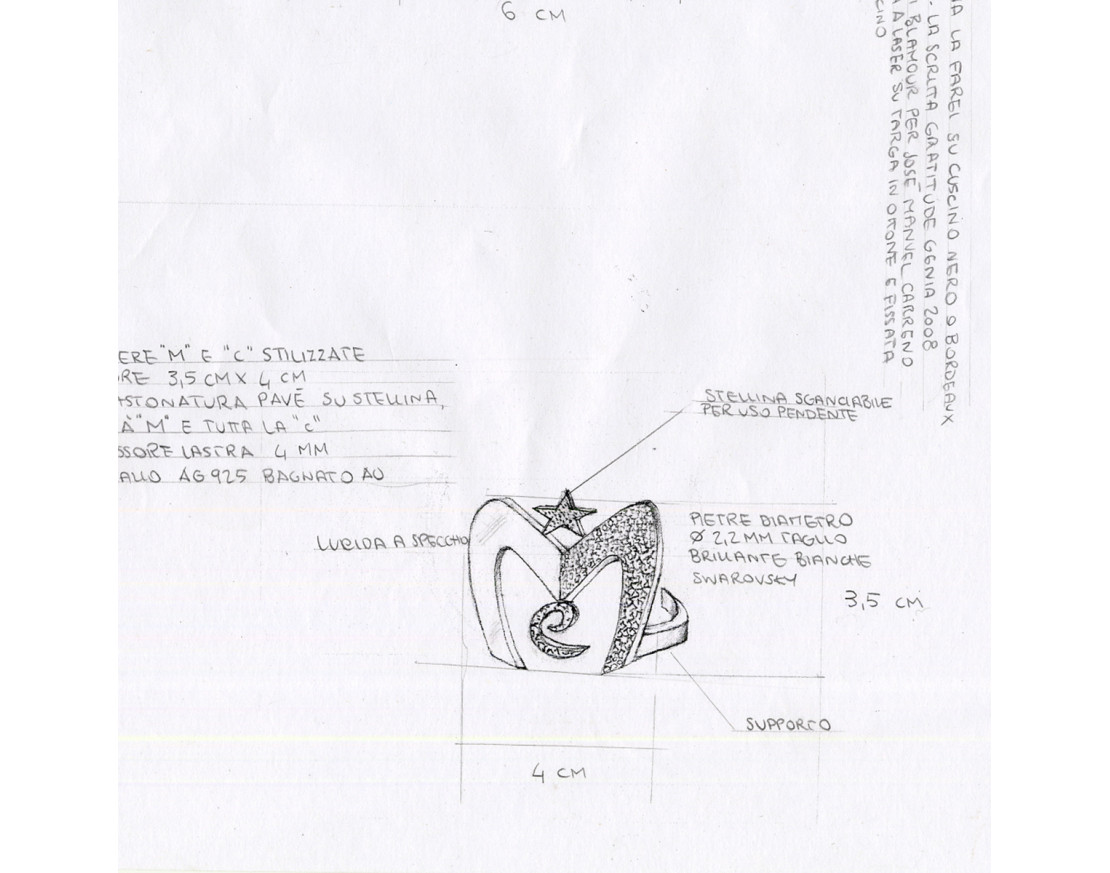 6 CM
NA LA FAREI SU CUSCINO NERO O BORDEAUX
- LA SCRITTA GRATITUDE GENIA 2008
I BLAMOUR PER JOSÉ MANUEL CARRENO
A LASER SU TARGA IN OTTONE E FISSATA
CINO
ERE "M" E "C" STILIZZATE
RE 3,5 CM X 4 CM
STONATURA PAVÉ SU STELLINA,
À "M" E TUTTA LA "C"
SSORE LASTRA 4 MM
ALLO AG 925 BAGNATO AU
STELLINA SGANCIABILE
PER USO PENDENTE
LUCIDA A SPECCHIO
PIETRE DIAMETRO
Ø 2,2 MM TAGLIO
BRILLANTE BIANCHE
SWAROVSKY
3,5 CM
SUPPORTO
4 CM